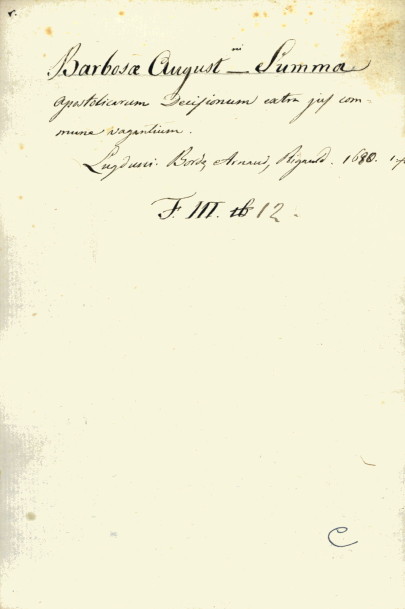 Barbosæ August_iii_ — Summa
apostolicarum Decisionum extra jus com-
mune vagantium.
Lugduni. Borde, Arnaud, Rigauld. 1680.
F. III. 12.
C